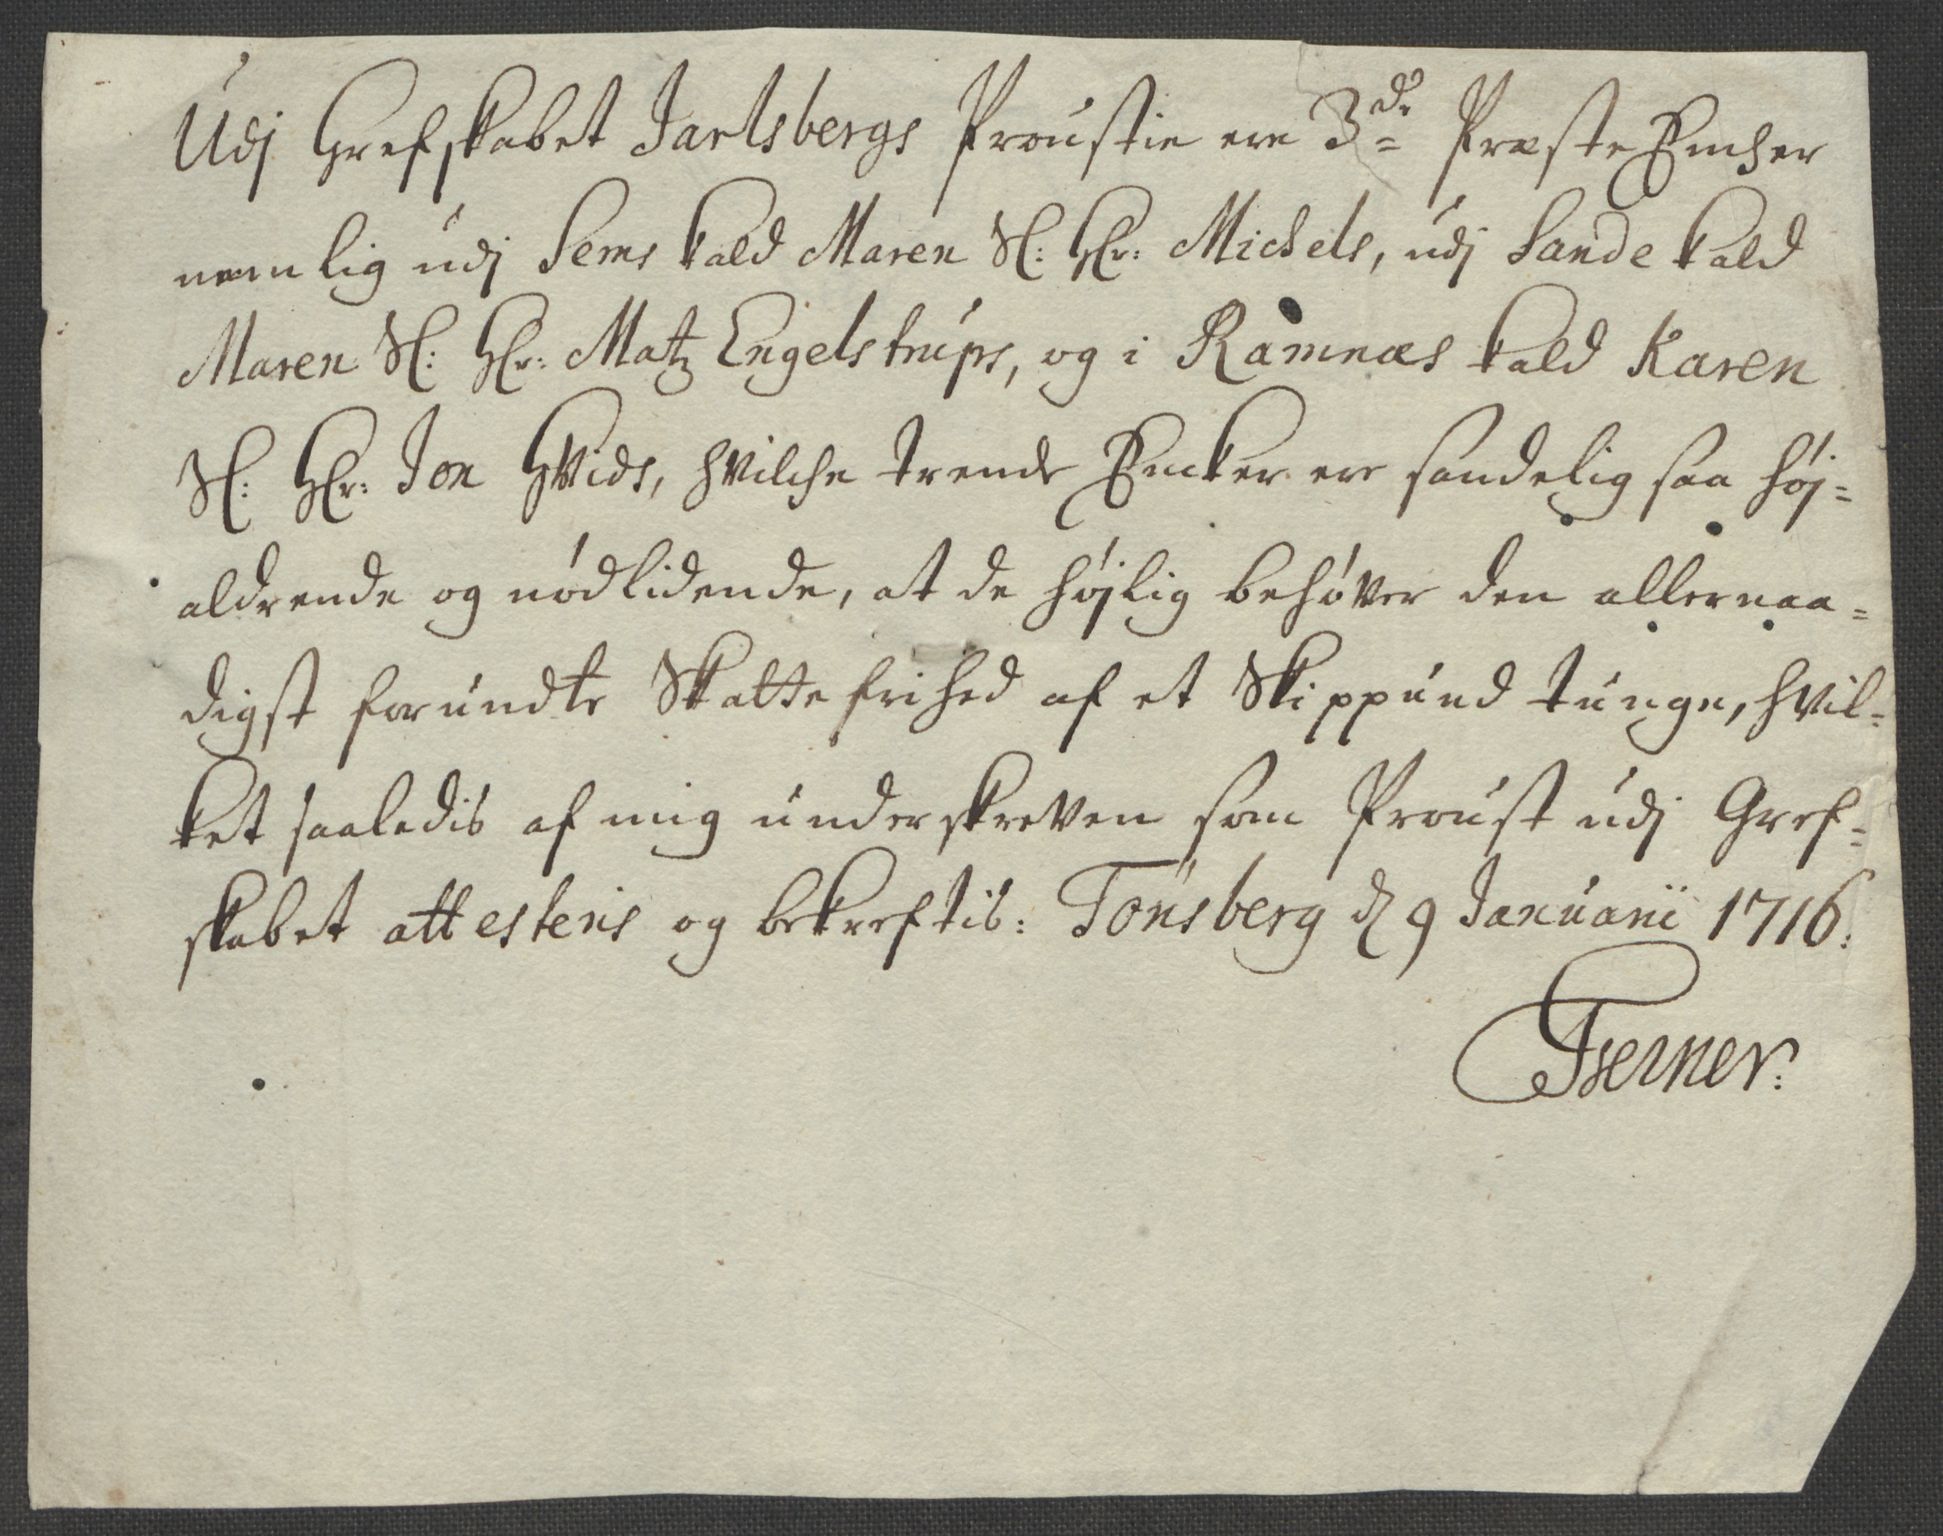 Udj Grefskabet Jarlsbergs Proustie ere 3de Præste Encher
nemlig udj Sems kald Maren Sl: Hr: Michels, udj Sande kald
Maren Sl: Hr: Matz Engelstrups, og i Ramnæs kald Karen
Sl: Hr: Jon Hvids, hvilche trende Encker ere sandelig saa høj=
aldrende og nødlidende, at de højlig behøver den allernaa=
digst forundte Skattefrihed af et Skippund tunge, hvil=
ket saaledis af mig underskreven som Proust udj Gref=
skabet attesteris og bekreftis: Tønsberg d 9 Januarii 1716: